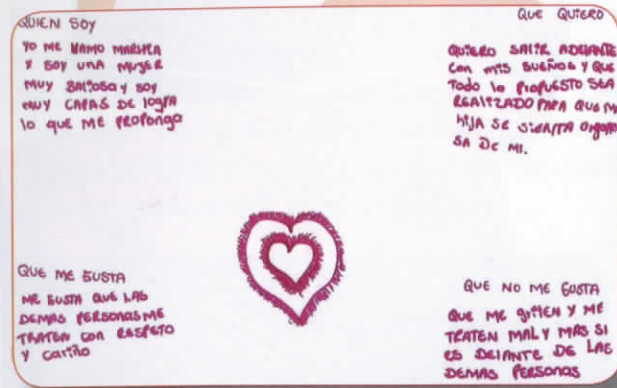 QUIEN SOY
YO ME LLAMO MARITZA
Y SOY UNA MUJER
MUY BALIOSA Y SOY
MUY CAPAS DE logra
lo que ME PROPONGO
QUE QUIERO
QUIERO SALIR ADELANTE
Con mis SUEÑOS Y QUE
Todo lo PROPUESTO SEA
REALIZADO PARA QUE MI
HIJA SE SIENTA ORgOllO
SA DE MI.
QUE ME GUSTA
ME GUSTA QUE LAS
DEMAS PERSONAS ME
TRATEN CON RESPETO
Y CARIÑO
QUE NO ME GUSTA
QUE ME griTEN Y ME
TRATEN MAL Y MAS SI
ES DELANTE DE LAS
DEMAS PERSONAS